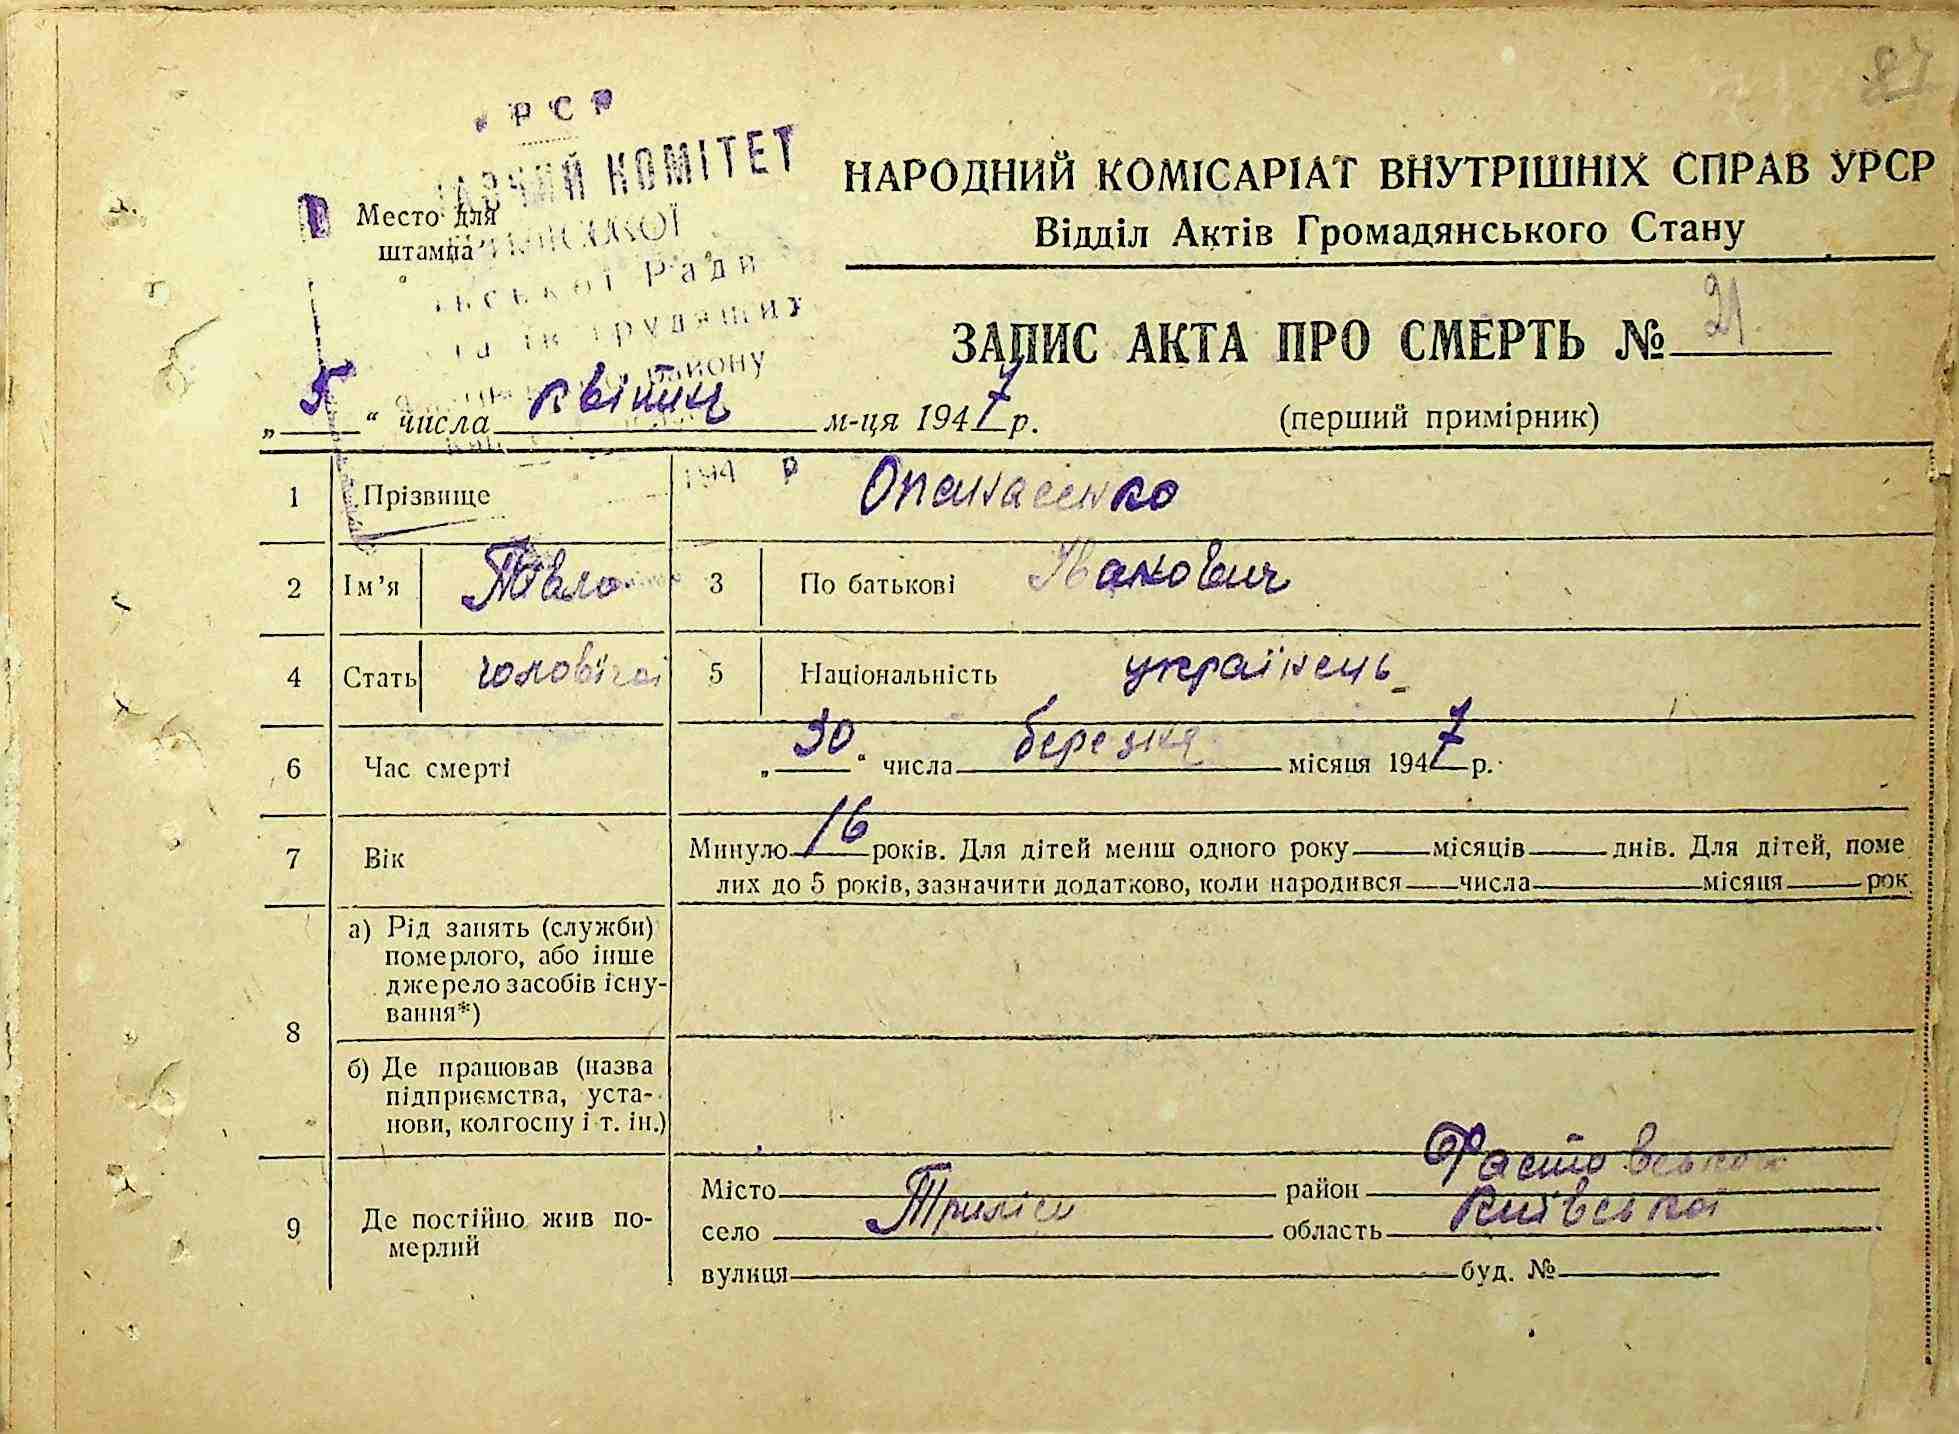 РСР
КОМІТЕТ
НАРОДНИЙ КОМІСАРІАТ ВНУТРІШНІХ СПРАВ УРСР
Место для
штампа
Відділ Актів Громадянського Стану
Ради
трудящих
району
ЗАПИС АКТА ПРО СМЕРТЬ № 21
„ 5 “ числа квітня м-ця 1947 р.
(перший примірник)
194 р
1 Прізвище Опанасенко
2 Ім’я Павло 3 По батькові Іванович
4 Стать чоловіча 5 Національність українець
6 Час смерті „ 30 “ числа березня місяця 1947 р.
7 Вік Минуло 16 років. Для дітей менш одного року місяців днів. Для дітей, поме
лих до 5 років, зазначити додатково, коли народився числа місяця рок
8 а) Рід занять (служби)
померлого, або інше
джерело засобів існу-
вання*)
б) Де працював (назва
підприємства, уста-
нови, колгоспу і т. ін.)
9 Де постійно жив по-
мерлий
Місто район Фастовської
село Триліси область Київська
вулиця буд. №